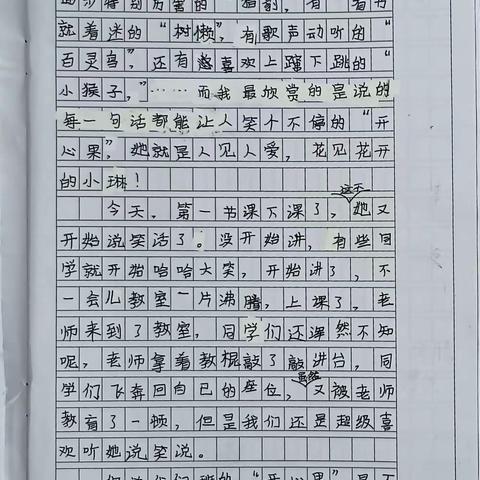 就着迷的“树懒”，有歌声动听的“
百灵鸟”，还有憨喜欢上蹿下跳的“
小猴子，”……而我最欣赏的是说的
每一句话都能让人笑个不停的“开
心果”，她就是人见人爱，花见花开
的小琳！
今天，第一节课下课了，这不她又
开始说笑话了。没开始讲，有些同
学就开始哈哈大笑，开始讲了，不
一会儿教室一片沸腾，上课了，老
师来到了教室，同学们还浑然不知
呢，老师拿着教棍敲了敲讲台，同
学们飞奔回自己的座位，虽然又被老师
教育了一顿，但是我们还是超级喜
欢听她说笑说。
“开心果”是